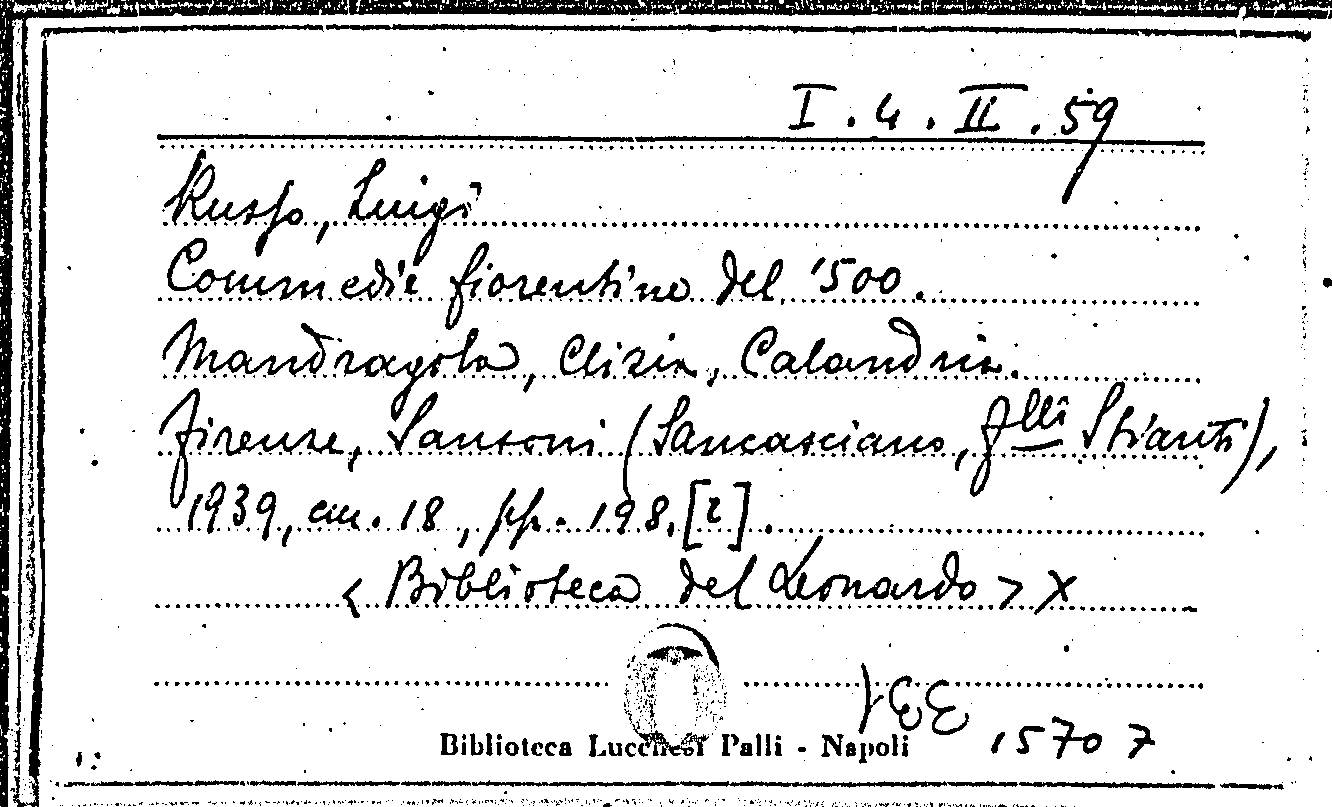 I.4.II.59
Russo, Luigi
Commedie fiorentine del '500.
Mandragola, Clizia, Calandria.
Firenze, Sansoni (Sancasciano, F.lli Stianti),
1939, cm. 18, pp. 198, [2].
< Biblioteca del Leonardo > X
15707
Biblioteca Lucchesi Palli - Napoli